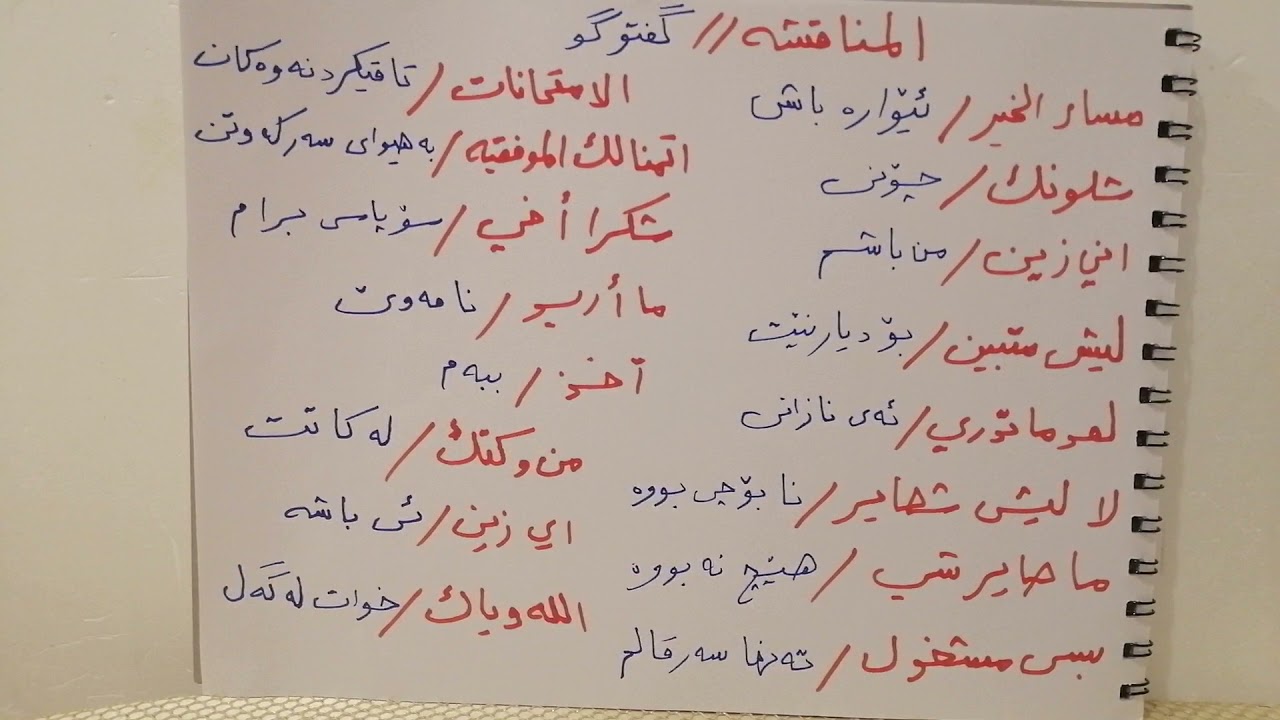 المناقشه // گفتوگو
مساء الخير / ئێواره باش
شلونك / چۆنی
اني زين / من باشم
ليش متبين / بۆ دیار نێیت
لعد ما تدري / ئەی نازانی
لا ليش شصاير / نا بۆچی بووه
ما صاير شي / هیچ نه بووه
بس مشغول / تەنها سەرقالم
الامتحانات / تاقیکردنەوەکان
اتمنالك الموفقيه / بە هیوای سەرکەوتن
شكرا أخي / سۆپاسی برام
ما أريد / نامەوێ
آخذ / ببەم
من وكتك / لە کاتت
اي زين / ئی باشە
الله وياك / خوات لەگەل